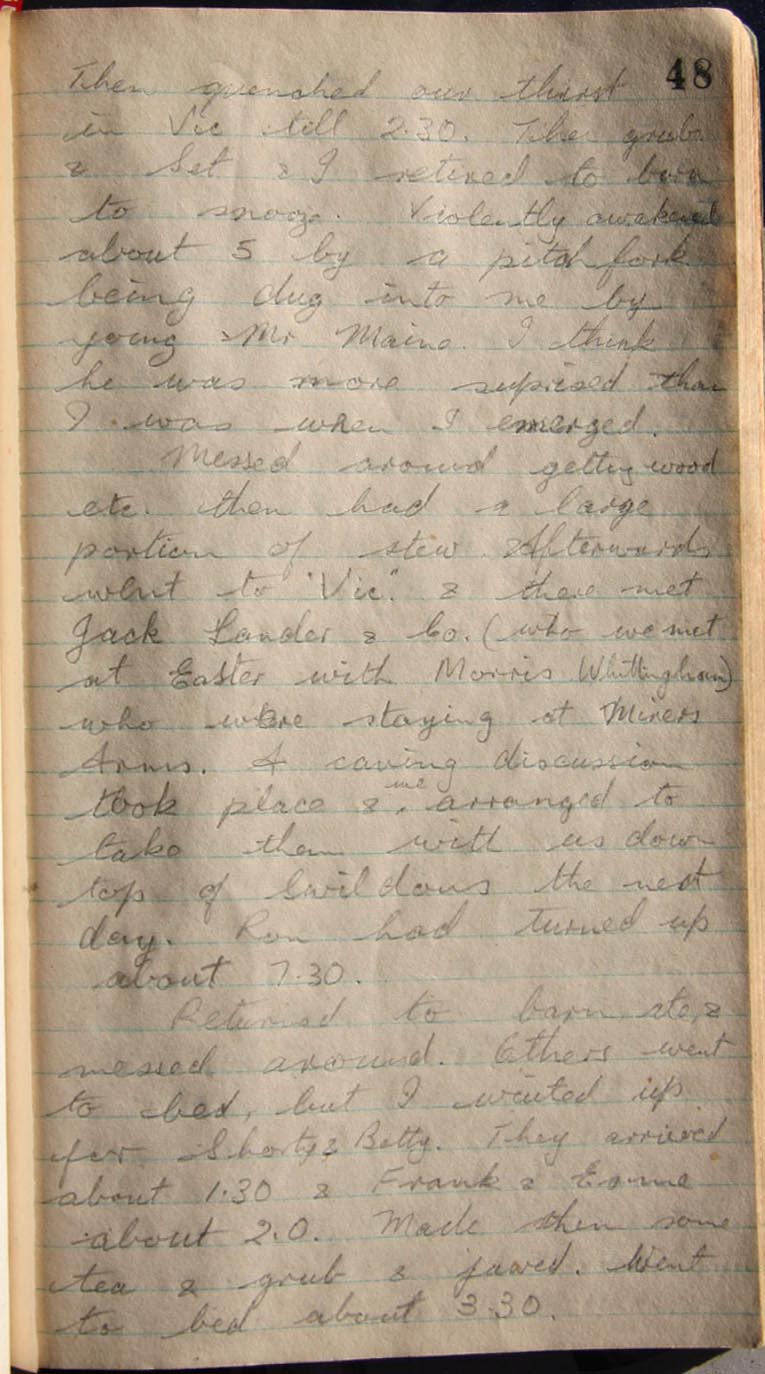 48
Then quenched our thirst
in Vic till 2.30. Then grub
& Set & I retired to barn
to snooze. Violently awakened
about 5 by a pitch fork
being dug into me by
young Mr Maine. I think
he was more suprised than
I was when I emerged.
Messed around getting wood
etc. then had a large
portion of stew. & Afterwards
went to "Vic". & there met
Jack Lander & Co. (who we met
at Easter with Morris Whittingham)
who were staying at Miners
Arms. A caving discussion
took place & we arranged to
take them with us down
top of Swildons the next
day. Ron had turned up
about 7.30.
Returned to barn ate, &
messed around. Others went
to bed, but I waited up
for Shorty & Betty. They arrived
about 1.30 & Frank & Esme
about 2.0. Made them some
tea & grub & jawed. Went
to bed about 3.30.